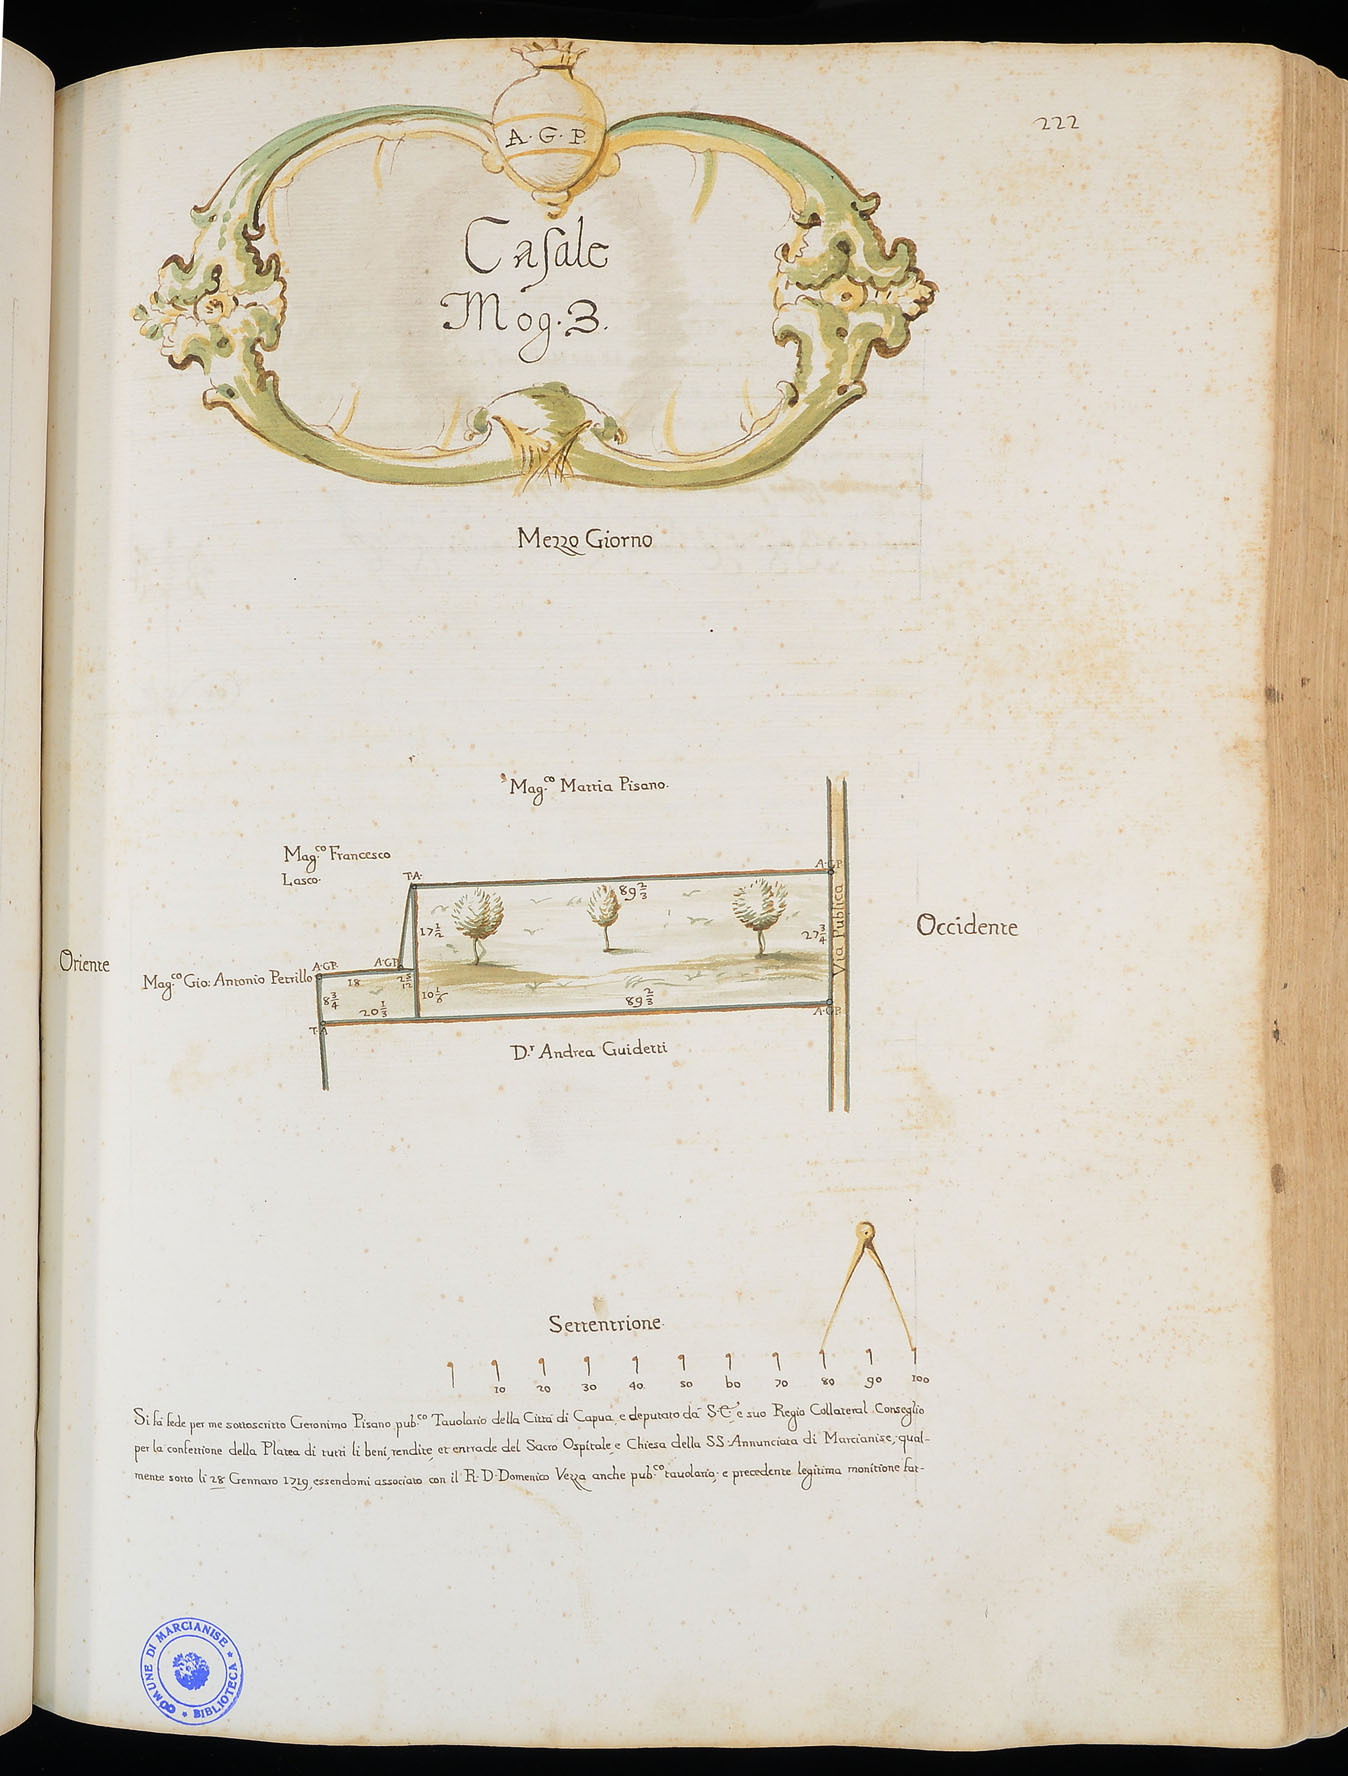 222
A·G·P.
Caſale
Mog. 3.
Mezzo Giorno
Mag.co Mattia Pisano.
Mag.co Francesco
Lasco.
T·A·
A·G·P.
89 2/3
17 1/2
27 3/4
Via Publica
Occidente
Oriente
Mag.co Gio: Antonio Petrillo
A·G·P.
A·G·P.
18
2 5/12
8 3/4
20 1/3
10 1/6
89 2/3
A·G·P.
T·A
D.r Andrea Guidetti
Settentrione.
10 20 30 40 50 60 70 80 90 100
Si fà fede per me sottoscritto Geronimo Pisano pub.co Tauolario della Città di Capua, e deputato dà S.C. e suo Regio Collateral Conseglio
per la confettione della Platea di tutti li beni, rendite, et entrade del Sacro Ospitale, e Chiesa della SS. Annunciata di Marcianise, qual-
mente sotto li 28 Gennaro 1719, essendomi associato con il R. D. Domenico Vezza anche pub.co tauolario; e precedente legitima monitione fat-
COMUNE DI MARCIANISE * BIBLIOTECA *